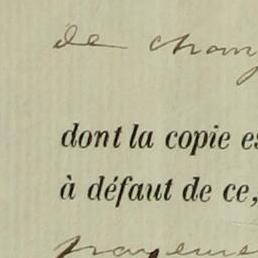 de chang
dont la copie es
à défaut de ce,
payeme